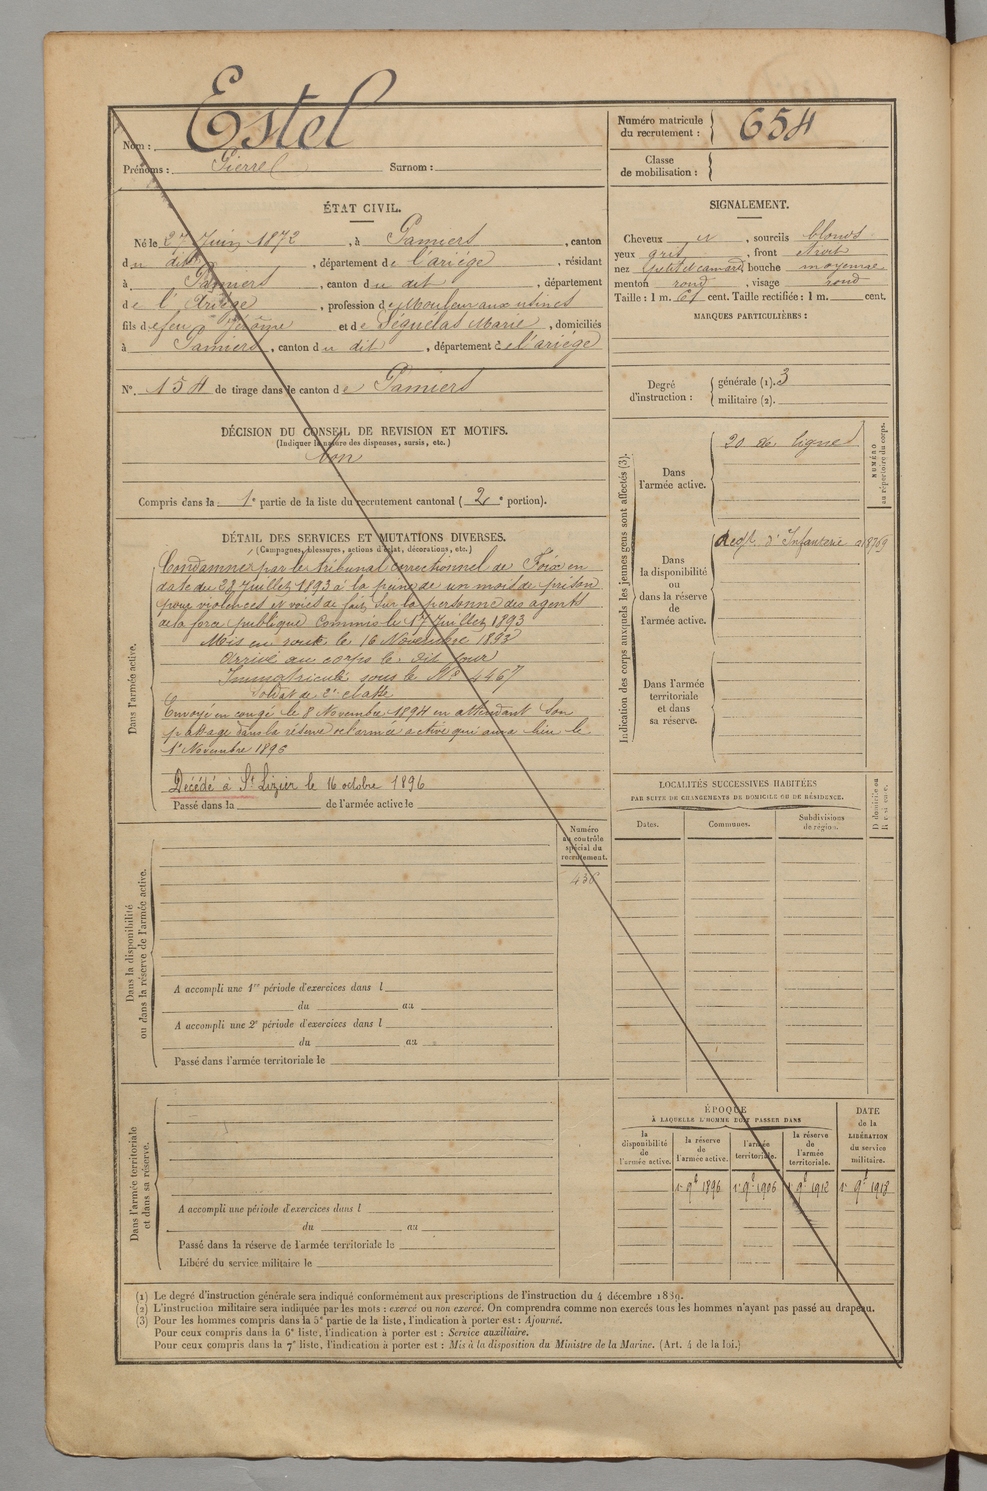 Nom : Estel
Prénoms : Pierre Surnom :
Numéro matricule du recrutement : 654
Classe de mobilisation :
ÉTAT CIVIL.
Né le 27 Juin 1872, à Pamiers, canton
du dit, département de l'ariége, résidant
à Pamiers, canton du dit, département
de l'Ariége, profession de Mouleur aux usines
fils de feu Jérôme et de Séguélas Marie, domiciliés
à Pamiers, canton du dit, département de l'ariége
N° 154 de tirage dans le canton de Pamiers
DÉCISION DU CONSEIL DE REVISION ET MOTIFS.
(Indiquer la nature des dispenses, sursis, etc.)
bon
Compris dans la 1e partie de la liste du recrutement cantonal (2e portion).
SIGNALEMENT.
Cheveux et, sourcils blonds
yeux gris, front étroit
nez petit et camard, bouche moyenne
menton rond, visage rond
Taille : 1 m. 61 cent. Taille rectifiée : 1 m. cent.
MARQUES PARTICULIÈRES :
Degré d'instruction :
générale (1). 3
militaire (2).
DÉTAIL DES SERVICES ET MUTATIONS DIVERSES.
(Campagnes, blessures, actions d'éclat, décorations, etc.)
Dans l'armée active.
Condamné par le tribunal correctionnel de Foix en
date du 28 Juillet 1893 à la peine de un mois de prison
pour violences et voies de fait sur la personne des agents
de la force publique commis le 17 Juillet 1893
Mis en route le 16 Novembre 1893
Arrivé au corps le dit jour
Immatriculé sous le N° 4467
Soldat de 2e classe
Envoyé en congé le 8 Novembre 1894 en attendant son
passage dans la réserve de l'armée active qui aura lieu le
1er Novembre 1896
Décédé à St Lizier le 16 octobre 1896
Passé dans la de l'armée active le
Indication des corps auxquels les jeunes gens sont affectés (3).
NUMÉRO au répertoire du corps.
Dans l'armée active.
20 de ligne
Dans la disponibilité ou dans la réserve de l'armée active.
Regt d'Infanterie a 18769
Dans l'armée territoriale et dans sa réserve.
LOCALITÉS SUCCESSIVES HABITÉES
PAR SUITE DE CHANGEMENTS DE DOMICILE OU DE RÉSIDENCE.
Dates. Communes. Subdivisions de région. D domicile ou R résidence.
Numéro au contrôle spécial du recrutement.
Dans la disponibilité ou dans la réserve de l'armée active.
A accompli une 1re période d'exercices dans l
du au
A accompli une 2e période d'exercices dans l
du au
Passé dans l'armée territoriale le
Dans l'armée territoriale et dans sa réserve.
A accompli une période d'exercices dans l
du au
Passé dans la réserve de l'armée territoriale le
Libéré du service militaire le
ÉPOQUE
À LAQUELLE L'HOMME DOIT PASSER DANS
la disponibilité de l'armée active.
la réserve de l'armée active.
l'armée territoriale.
la réserve de l'armée territoriale.
DATE de la LIBÉRATION du service militaire.
1er 9bre 1896 1er 9bre 1906 1er 9bre 1912 1er 9bre 1918
(1) Le degré d'instruction générale sera indiqué conformément aux prescriptions de l'instruction du 4 décembre 1889.
(2) L'instruction militaire sera indiquée par les mots : exercé ou non exercé. On comprendra comme non exercés tous les hommes n'ayant pas passé au drapeau.
(3) Pour les hommes compris dans la 5e partie de la liste, l'indication à porter est : Ajourné.
Pour ceux compris dans la 6e liste, l'indication à porter est : Service auxiliaire.
Pour ceux compris dans la 7e liste, l'indication à porter est : Mis à la disposition du Ministre de la Marine. (Art. 4 de la loi.)